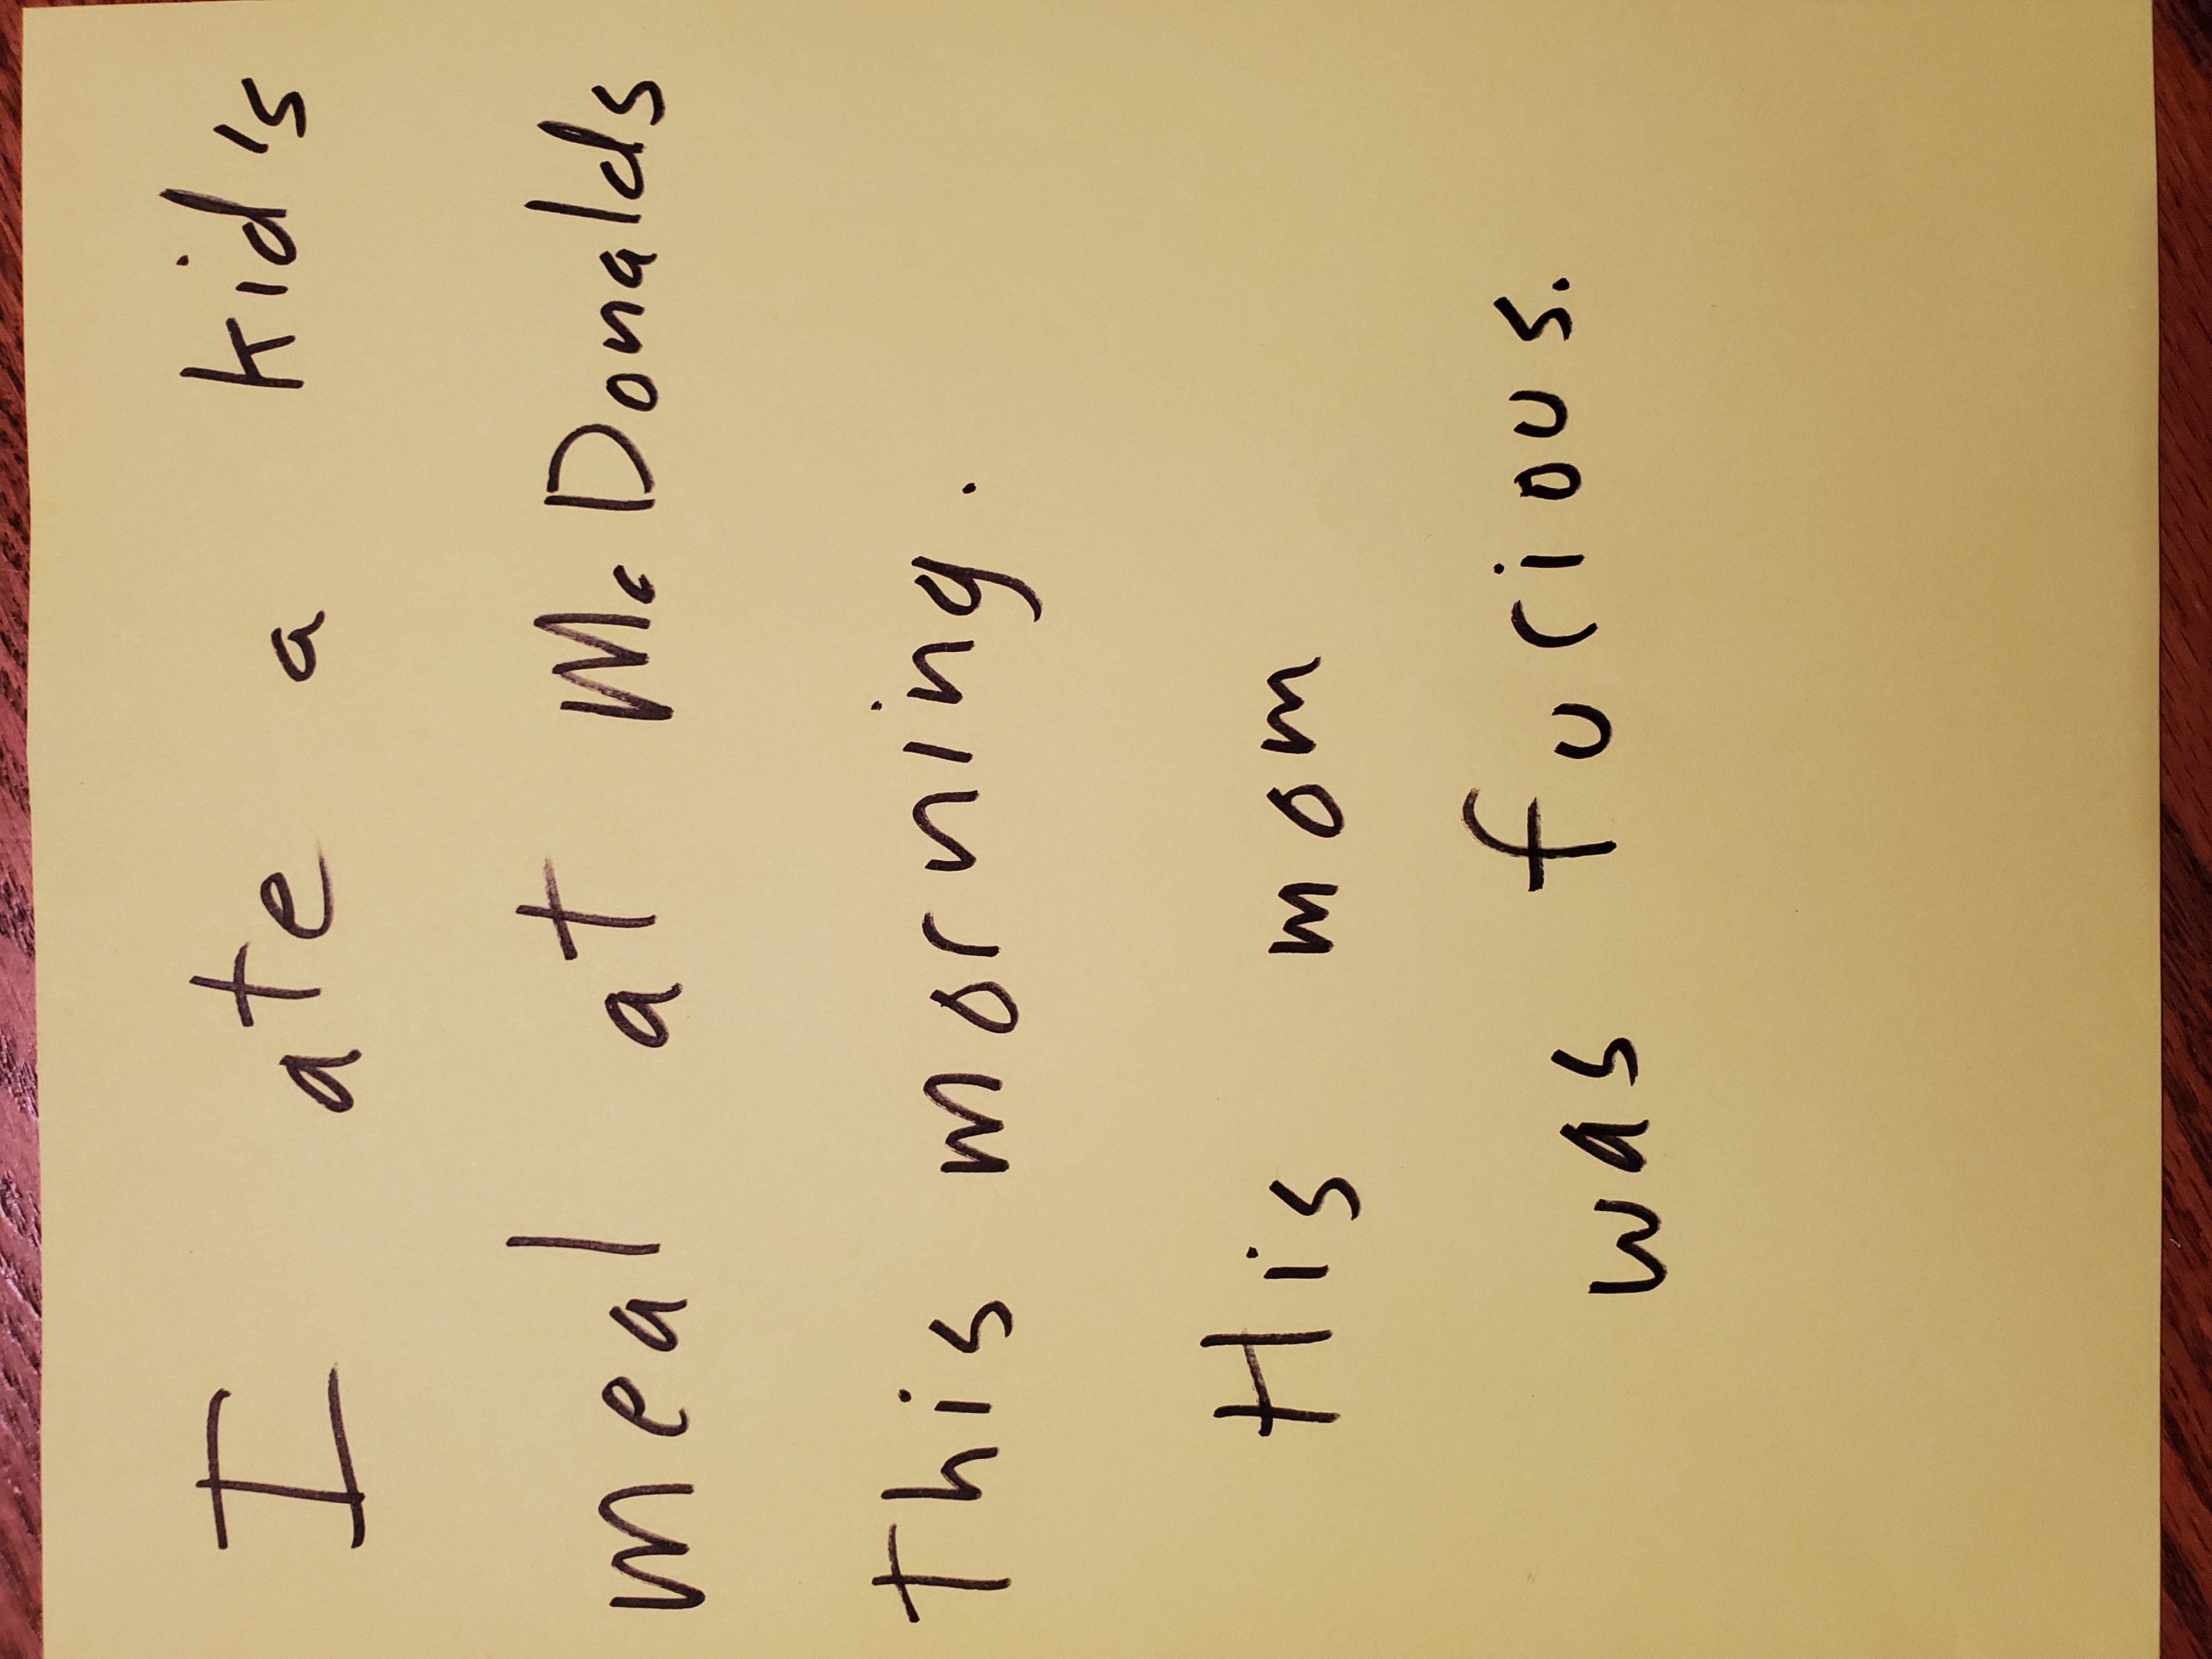 I ate a kid's
meal at McDonalds
this morning.
His mom
was furious.